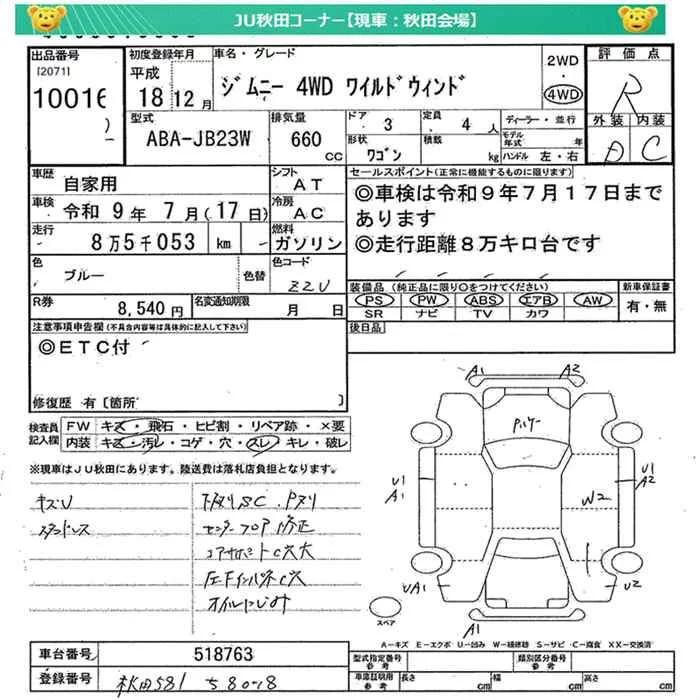 JU秋田コーナー【現車：秋田会場】
出品番号
[2071]
10016
初度登録年月
平成
18年12月
車名・グレード
ジムニー 4WD ワイルドウィンド
2WD
・
4WD
評価点
R
外装 内装
D C
型式
ABA-JB23W
排気量
660
cc
ドア 3
定員 4人
形状 ワゴン
積載 kg
ディーラー・並行
モデル年式 年
ハンドル 左・右
車歴 自家用
シフト AT
車検 令和 9年 7月(17日)
冷房 AC
走行 8万5千053 km
燃料 ガソリン
色 ブルー 色替
色コード ZZU
R券 8,540円
名変通知期限 月 日
セールスポイント(正常に機能するものに限ります)
◎車検は令和9年7月17日まで
あります
◎走行距離8万キロ台です
装備品(純正品に限り○をつけてください)
PS PW ABS エアB AW
SR ナビ TV カワ
新車保証書
有・無
後日品
注意事項申告欄(不具合内容等は具体的に記入して下さい)
◎ETC付
修復歴 有[箇所 ]
検査員記入欄
FW キズ・飛石・ヒビ割・リペア跡・×要
内装 キズ・汚レ・コゲ・穴・スレ・キレ・破レ
※現車はJU秋田にあります。陸送費は落札店負担となります。
キズU
スタッドレス
下廻りSC.Pヌリ
センターフロア修正
コアサポートC穴大
左FインパネC穴
オイルにじみ
A1
A2
Pハケー
U1
A1
U1
A2
W2
UA1
U2
A1
スペア
A－キズ E－エクボ U－凹み W－補修跡 S－サビ C－腐食 XX－交換済
車台番号 518763
登録番号 秋田581 ち80-18
型式指定番号 参考
類別区分番号 参考
車庫証明用 参考
長さ cm
幅 cm
高さ cm